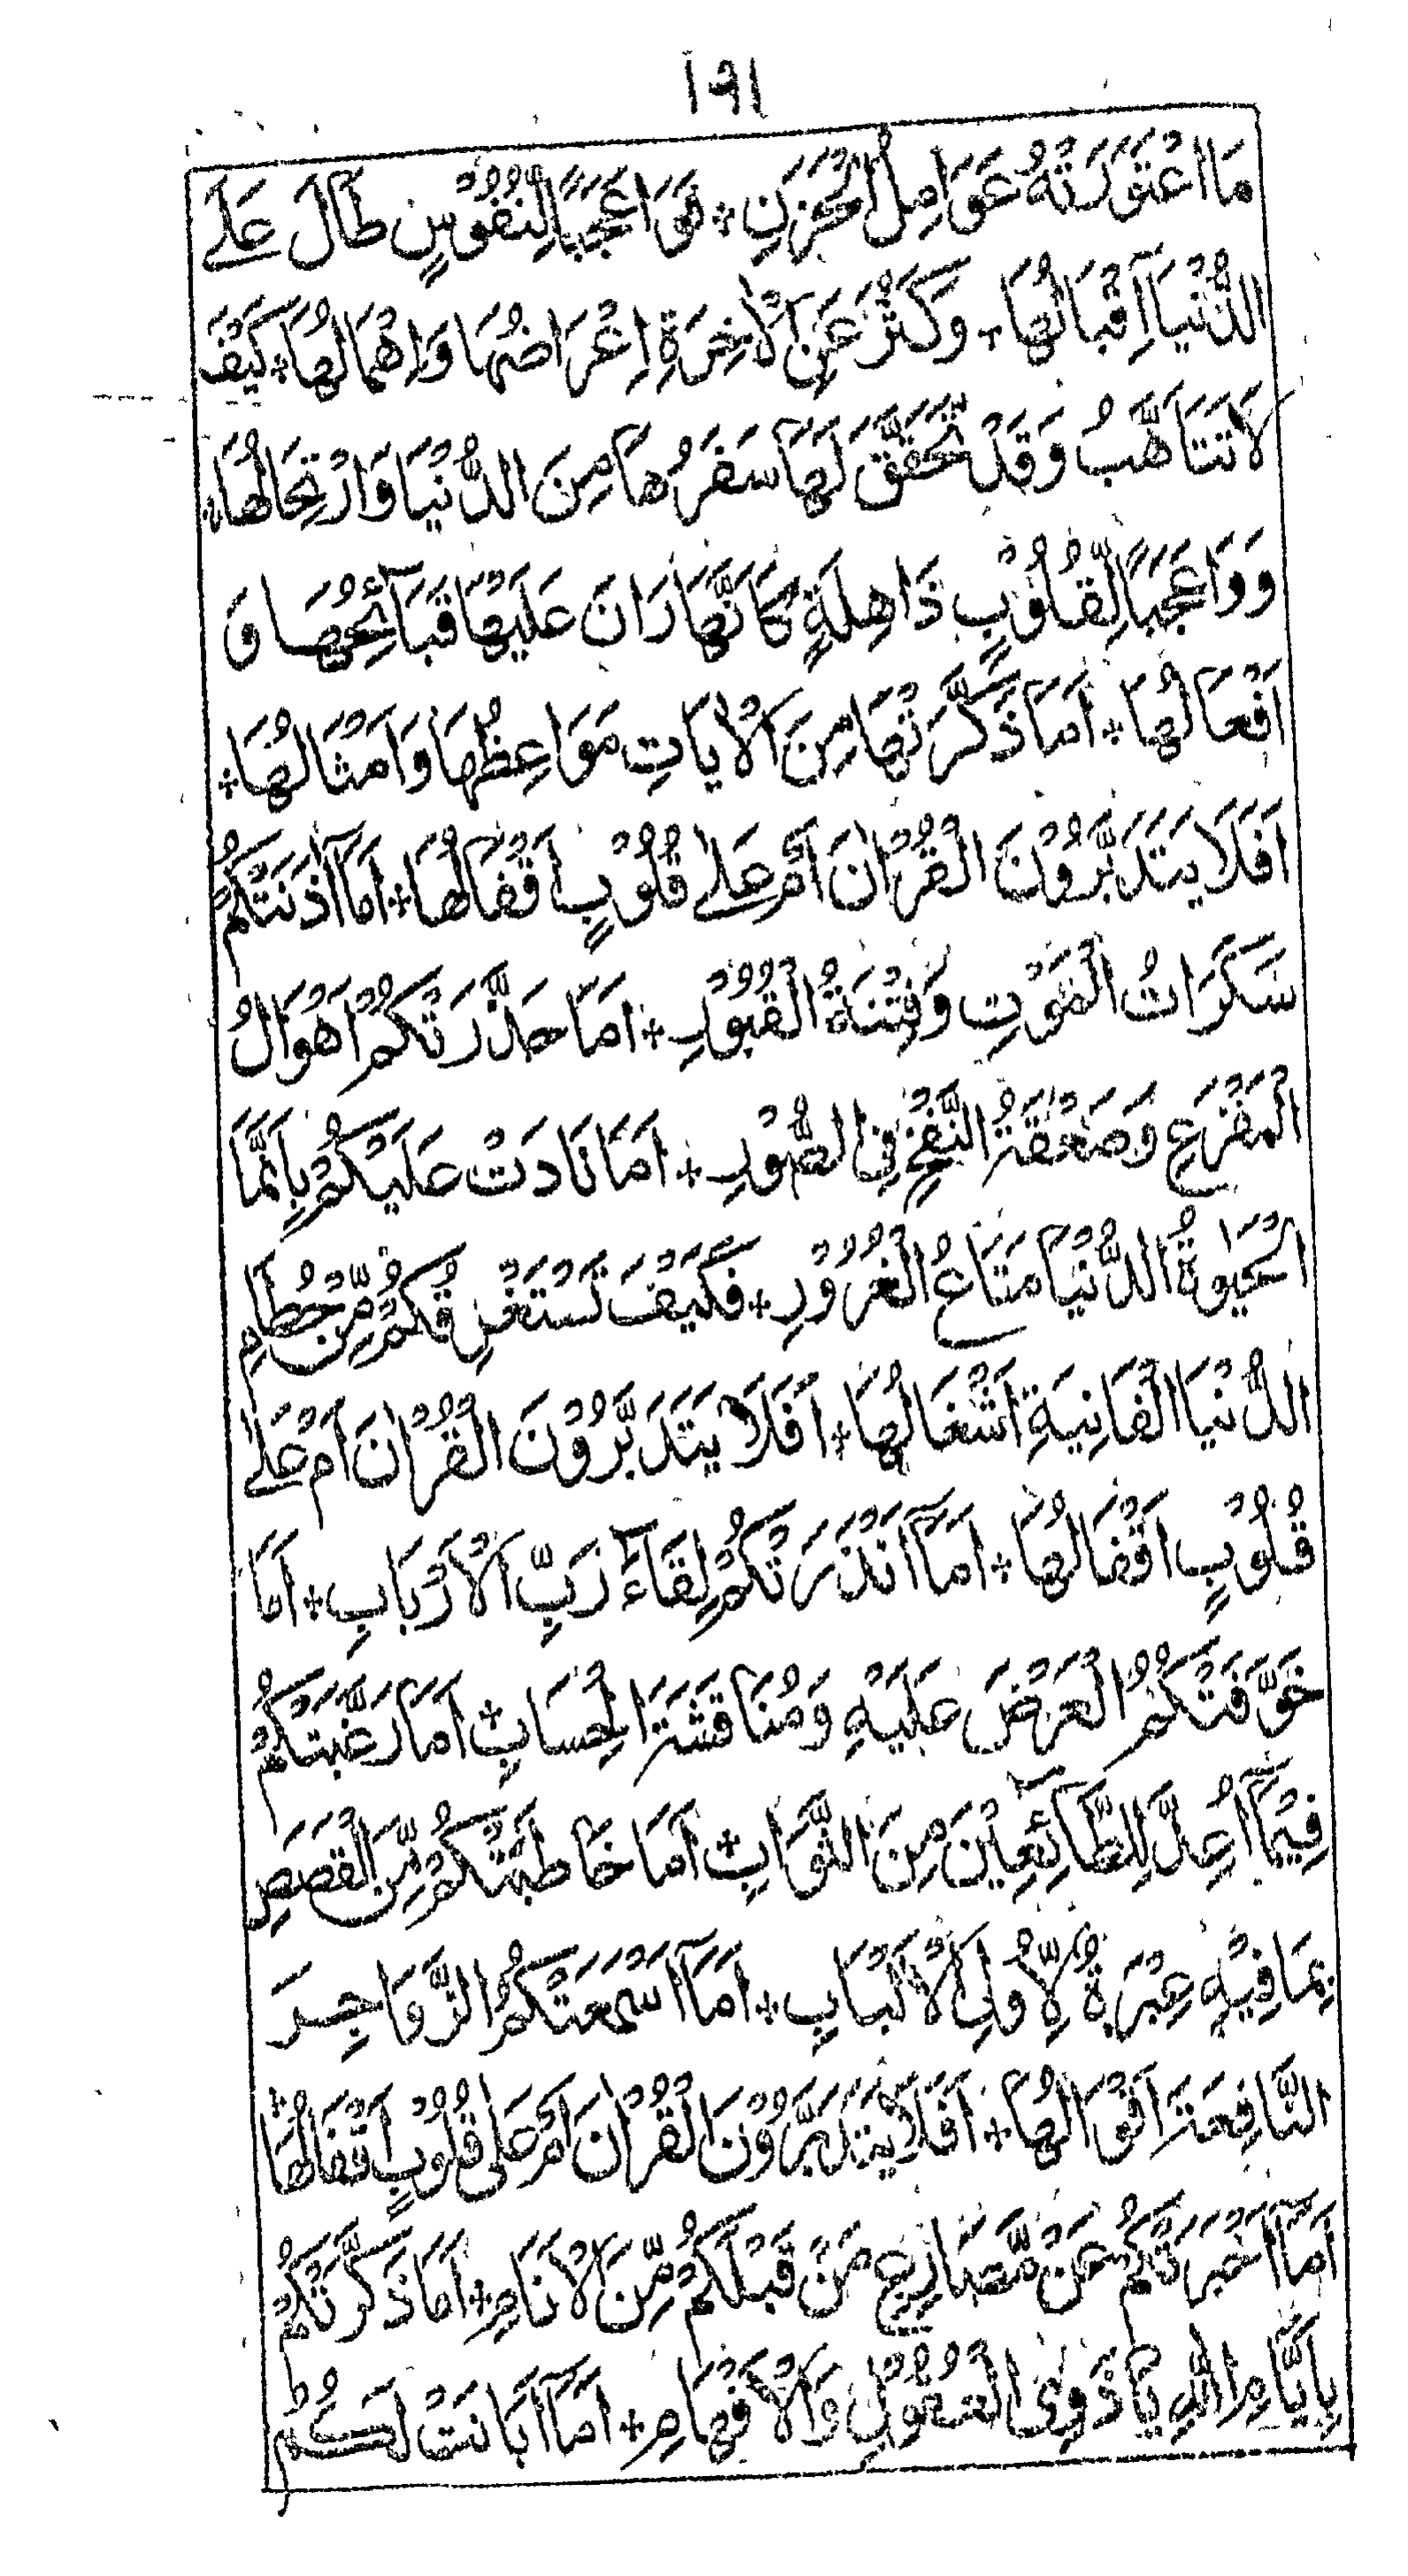 ۱۹۱
مَا اعْتَوَرَتْهُ عَوَامِلُ الْحُزْنِ ٭ فَوَا عَجَبًا لِنُفُوْسٍ طَالَ عَلَے
الدُّنْيَا اِقْبَالُهَا ٭ وَكَثُرَ عَنِ الْاٰخِرَةِ اِعْرَاضُهَا وَاِهْمَالُهَا ٭ كَيْفَ
لَا تَتَاَهَّبُ وَقَدْ تَحَقَّقَ لَهَا سَفَرُهَا مِنَ الدُّنْيَا وَارْتِحَالُهَا ٭
وَوَاعَجَبًا لِقُلُوْبٍ ذَاهِلَةٍ كَاَنَّهَا رَانَ عَلَيْهَا قَبَآئِحُهَا وَ
اَفْعَالُهَا ٭ اَمَا ذَكَّرَتْهَا مِنَ الْاٰيَاتِ مَوَاعِظُهَا وَاَمْثَالُهَا ٭
اَفَلَا يَتَدَبَّرُوْنَ الْقُرْاٰنَ اَمْ عَلٰے قُلُوْبٍ اَقْفَالُهَا ٭ اَمَا اٰذَنَتْكُمْ
سَكَرَاتُ الْمَوْتِ وَفِتْنَةُ الْقُبُوْرِ ٭ اَمَا حَذَّرَتْكُمْ اَهْوَالُ
الْمَفْزَعِ وَصَعْقَةُ النَّفْخِ فِي الصُّوْرِ ٭ اَمَا نَادَتْ عَلَيْكُمْ بِاَنَّمَا
الْحَيٰوةُ الدُّنْيَا مَتَاعُ الْغُرُوْرِ ٭ فَكَيْفَ تَسْتَغْرِقُكُمْ مِّنْ حُطَامِ
الدُّنْيَا الْفَانِيَةِ اَشْغَالُهَا ٭ اَفَلَا يَتَدَبَّرُوْنَ الْقُرْاٰنَ اَمْ عَلٰے
قُلُوْبٍ اَقْفَالُهَا ٭ اَمَآ اَنْذَرَتْكُمْ لِقَآءَ رَبِّ الْاَرْبَابِ ٭ اَمَا
خَوَّفَتْكُمُ الْعَرْضَ عَلَيْهِ وَمُنَاقَشَةَ الْحِسَابِ ٭ اَمَا رَغَّبَتْكُمْ
فِيْمَآ اُعِدَّ لِلطَّآئِعِيْنَ مِنَ الثَّوَابِ ٭ اَمَا خَاطَبَتْكُمْ مِّنَ الْقَصَصِ
بِمَا فِيْهِ عِبْرَةٌ لِّاُولِى الْاَلْبَابِ ٭ اَمَآ اَسْمَعَتْكُمُ الزَّوَاجِرَ
النَّافِعَةَ اَقْوَالُهَا ٭ اَفَلَا يَتَدَبَّرُوْنَ الْقُرْاٰنَ اَمْ عَلٰى قُلُوْبٍ اَقْفَالُهَا ٭
اَمَآ اَخْبَرَتْكُمْ عَنْ مَّصَارِعِ مَنْ قَبْلَكُمْ مِّنَ الْاَنَامِ ٭ اَمَا ذَكَّرَتْكُمْ
بِاَيَّامِ اللهِ يَا ذَوِى الْعُقُوْلِ وَالْاَفْهَامِ ٭ اَمَآ اَبَانَتْ لَكُمْ